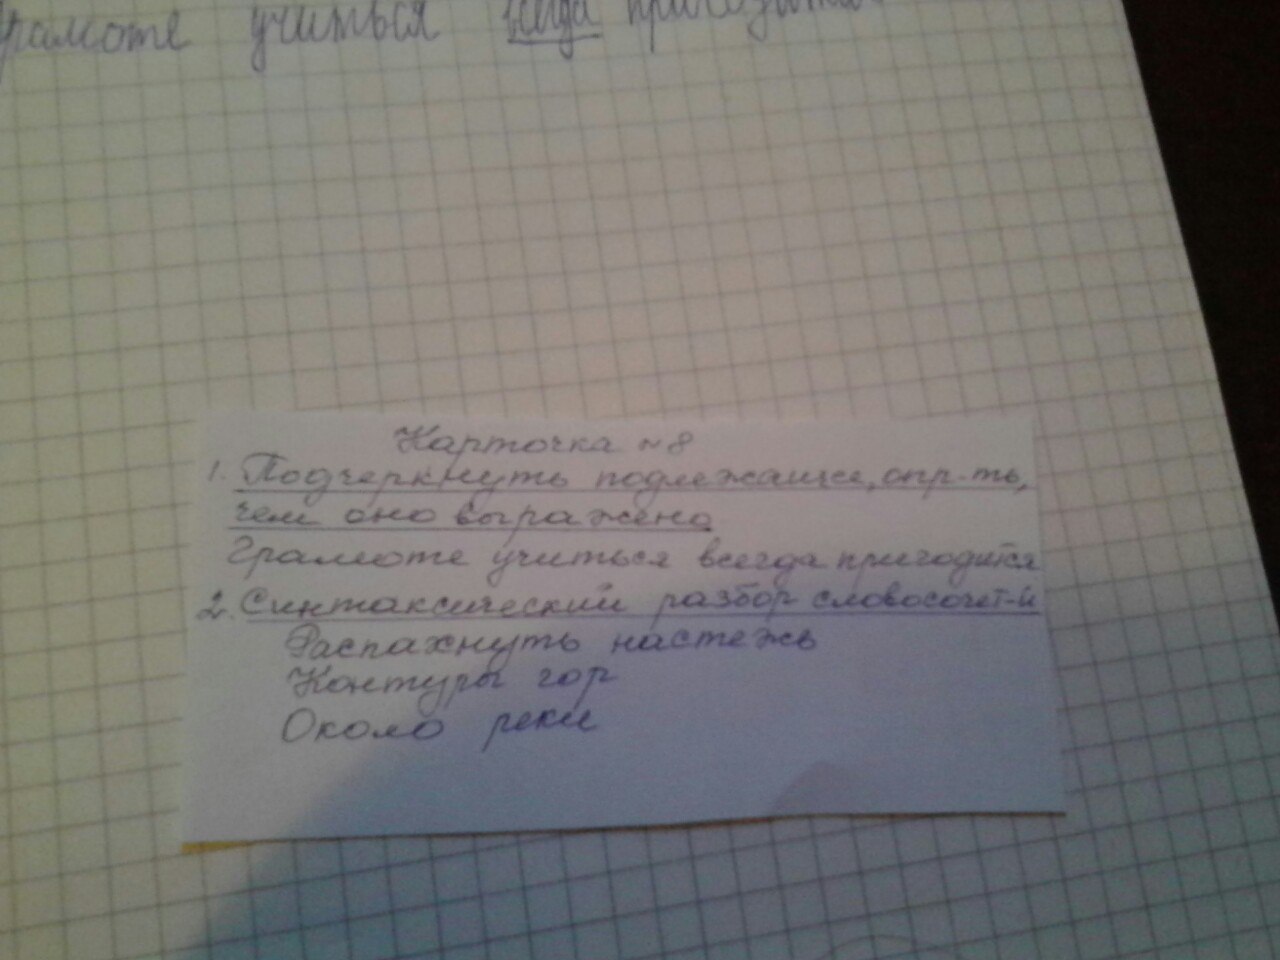 Грамоте учиться всегда пригодится
Карточка №8
1. Подчеркнуть подлежащее, опр-ть,
чем оно выражено
Грамоте учиться всегда пригодится
2. Синтаксический разбор словосочет-й
Распахнуть настежь
Контуры гор
Около реки